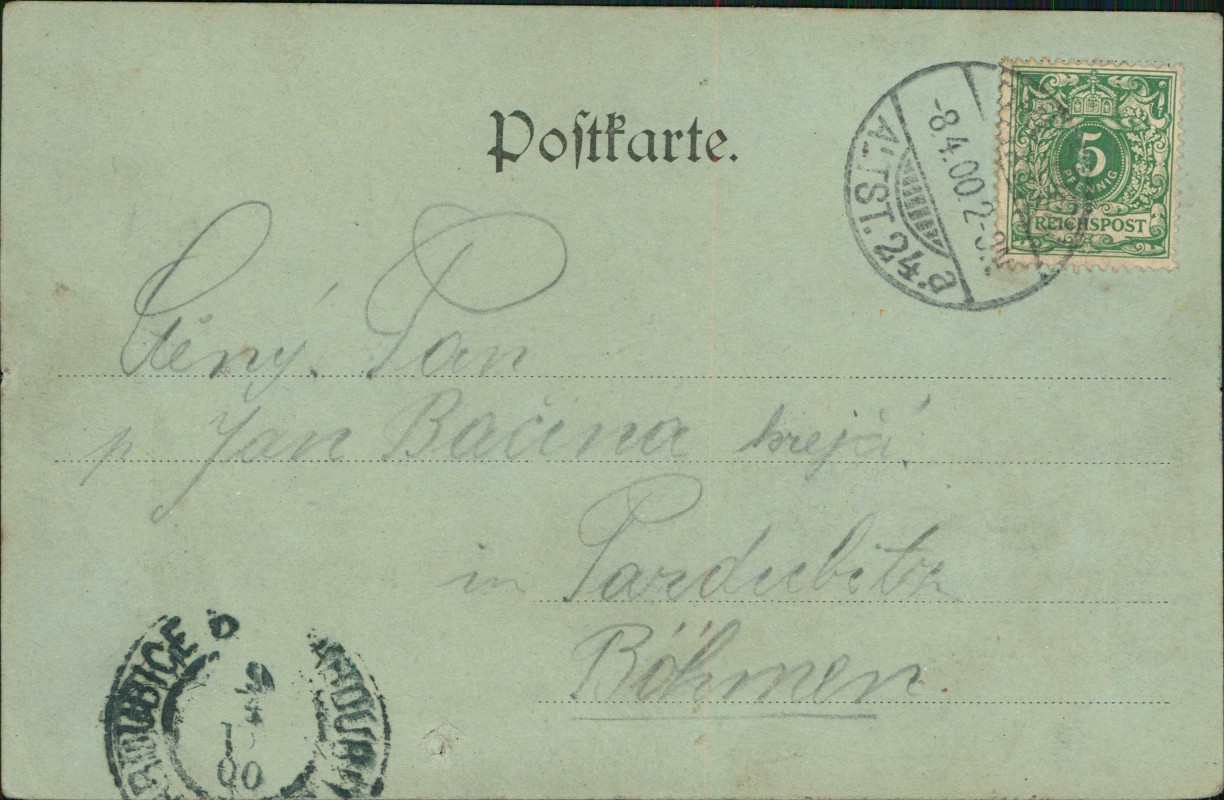 Postkarte.
-8.4.00.2-3
ALTST. 24.a
5
PFENNIG
REICHSPOST
Ctěný. Pan
p Jan Bačina krejčí
in Pardubitz
Böhmen
PARDUBICE
9
4
00